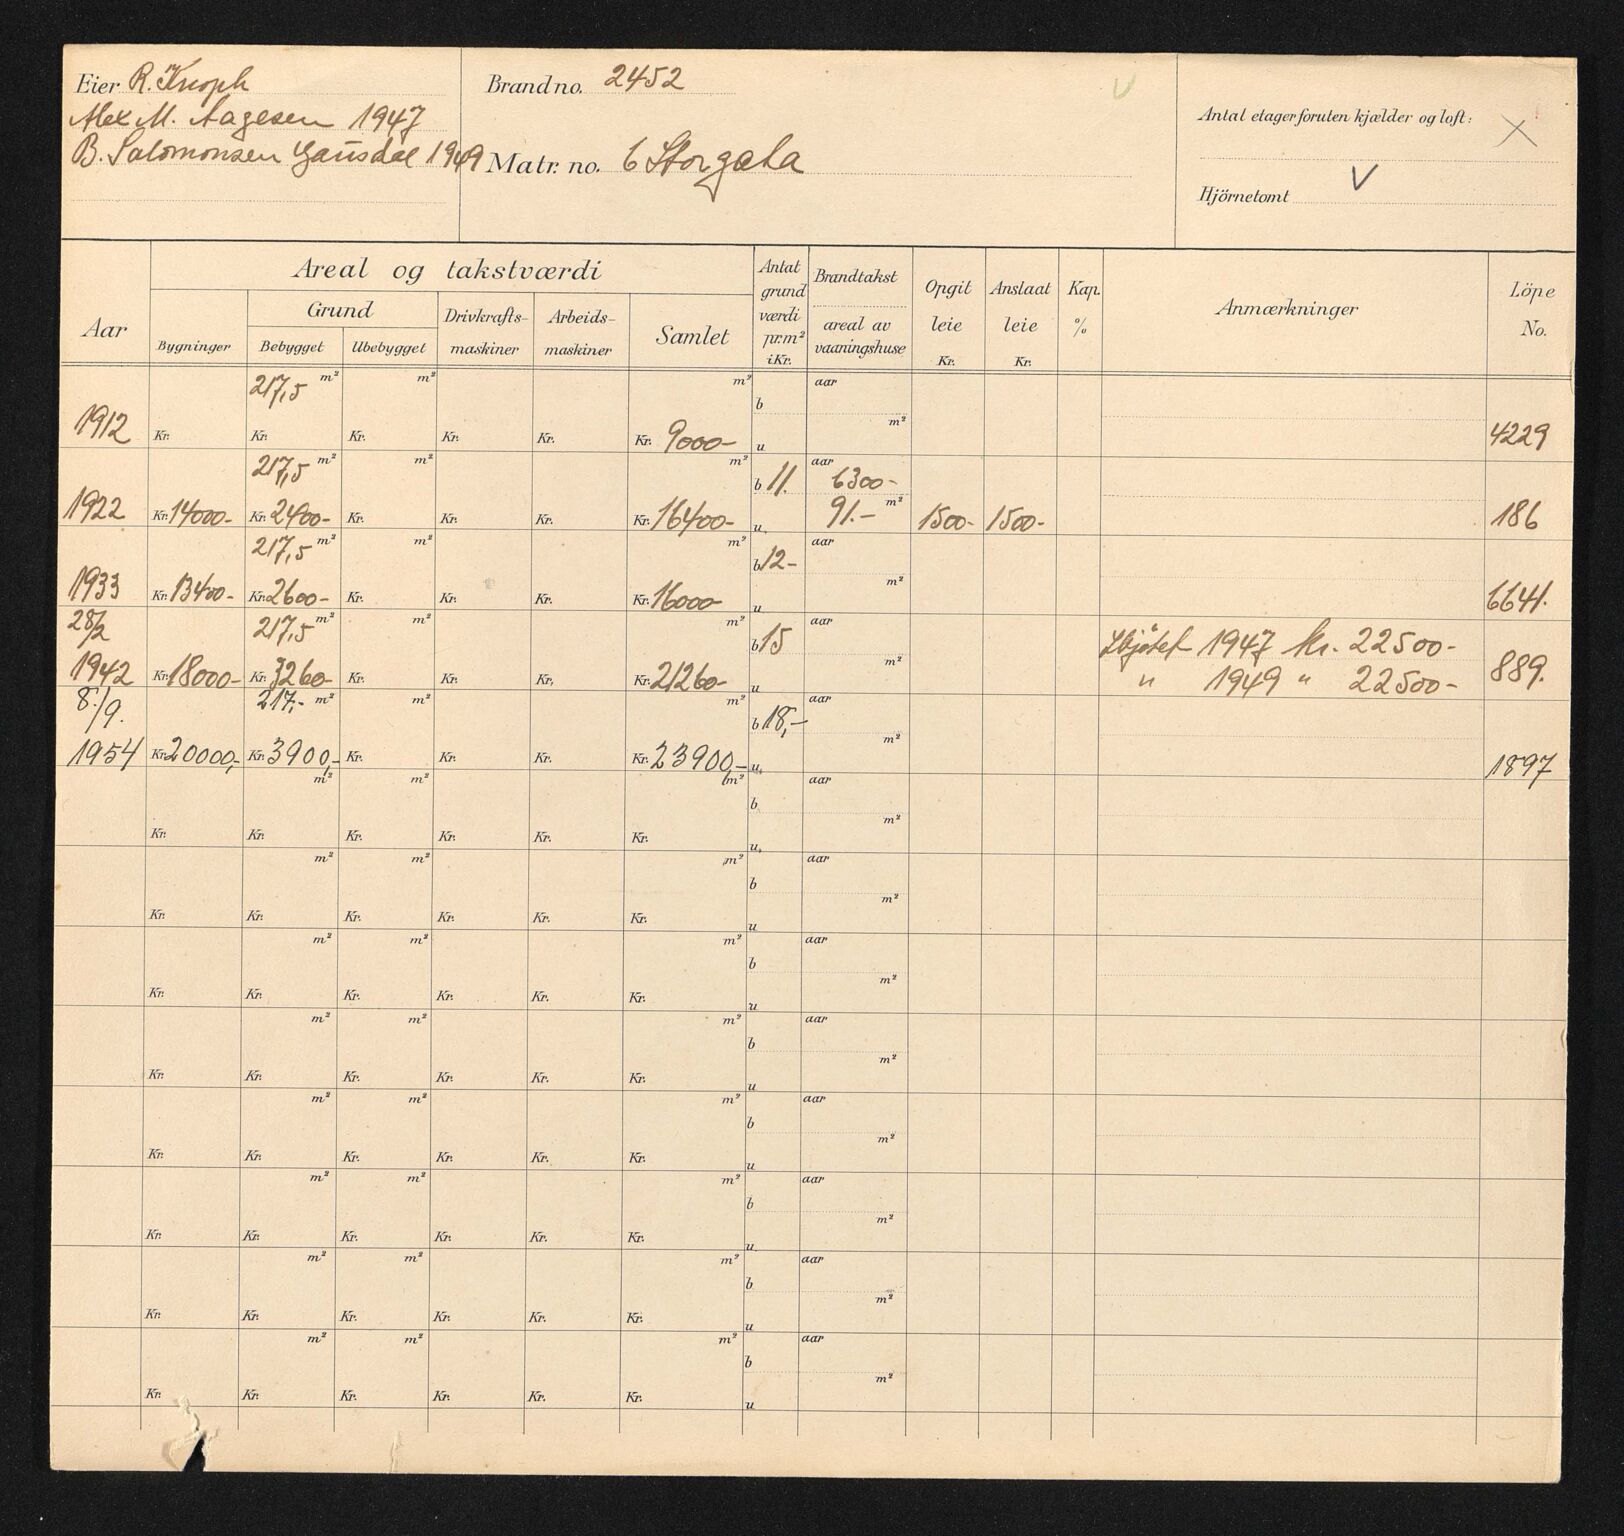 Eier R. Knoph
Alex M. Aagesen 1947
B. Salomonsen Gausdal 1949
Brandno. 2452
Matr. no. 6 Storgata
Antal etager foruten kjælder og loft:
Hjörnetomt
Aar
Areal og takstværdi
Bygninger
Grund
Bebygget
Ubebygget
Drivkrafts-maskiner
Arbeids-maskiner
Samlet
Antat grund værdi pr. m² i Kr.
Brandtakst
areal av vaaningshuse
Opgit leie Kr.
Anslaat leie Kr.
Kap. %
Anmærkninger
Löpe No.
217,5 m² m² m² aar
b
m²
1912 Kr. Kr. Kr. Kr. Kr. Kr. 9000- u 4229
217,5 m² m² m² aar
b 11. 6300-
1922 Kr. 14000- Kr. 2400- Kr. Kr. Kr. Kr. 16400- u 91.- m² 1500- 1500- 186
217,5 m² m² m² aar
b 12-
m²
1933 Kr. 13400- Kr. 2600- Kr. Kr. Kr. Kr. 16000 u 6641.
28/2 217,5 m² m² m² aar
b 15 1947 kr. 22500-
m²
1942 Kr. 18000- Kr. 3260- Kr. Kr. Kr. Kr. 21260- u " 1949 " 22500- 889.
8./9. 217,- m² m² m² aar
b 18,-
m²
1954 Kr. 20000,- Kr. 3900,- Kr. Kr. Kr. Kr. 23900,- u 1897
m² m² m² aar
b
m²
Kr. Kr. Kr. Kr. Kr. Kr. u
m² m² m² aar
b
m²
Kr. Kr. Kr. Kr. Kr. Kr. u
m² m² m² aar
b
m²
Kr. Kr. Kr. Kr. Kr. Kr. u
m² m² m² aar
b
m²
Kr. Kr. Kr. Kr. Kr. Kr. u
m² m² m² aar
b
m²
Kr. Kr. Kr. Kr. Kr. Kr. u
m² m² m² aar
b
m²
Kr. Kr. Kr. Kr. Kr. Kr. u
m² m² m² aar
b
m²
Kr. Kr. Kr. Kr. Kr. Kr. u
m² m² m² aar
b
m²
Kr. Kr. Kr. Kr. Kr. Kr. u